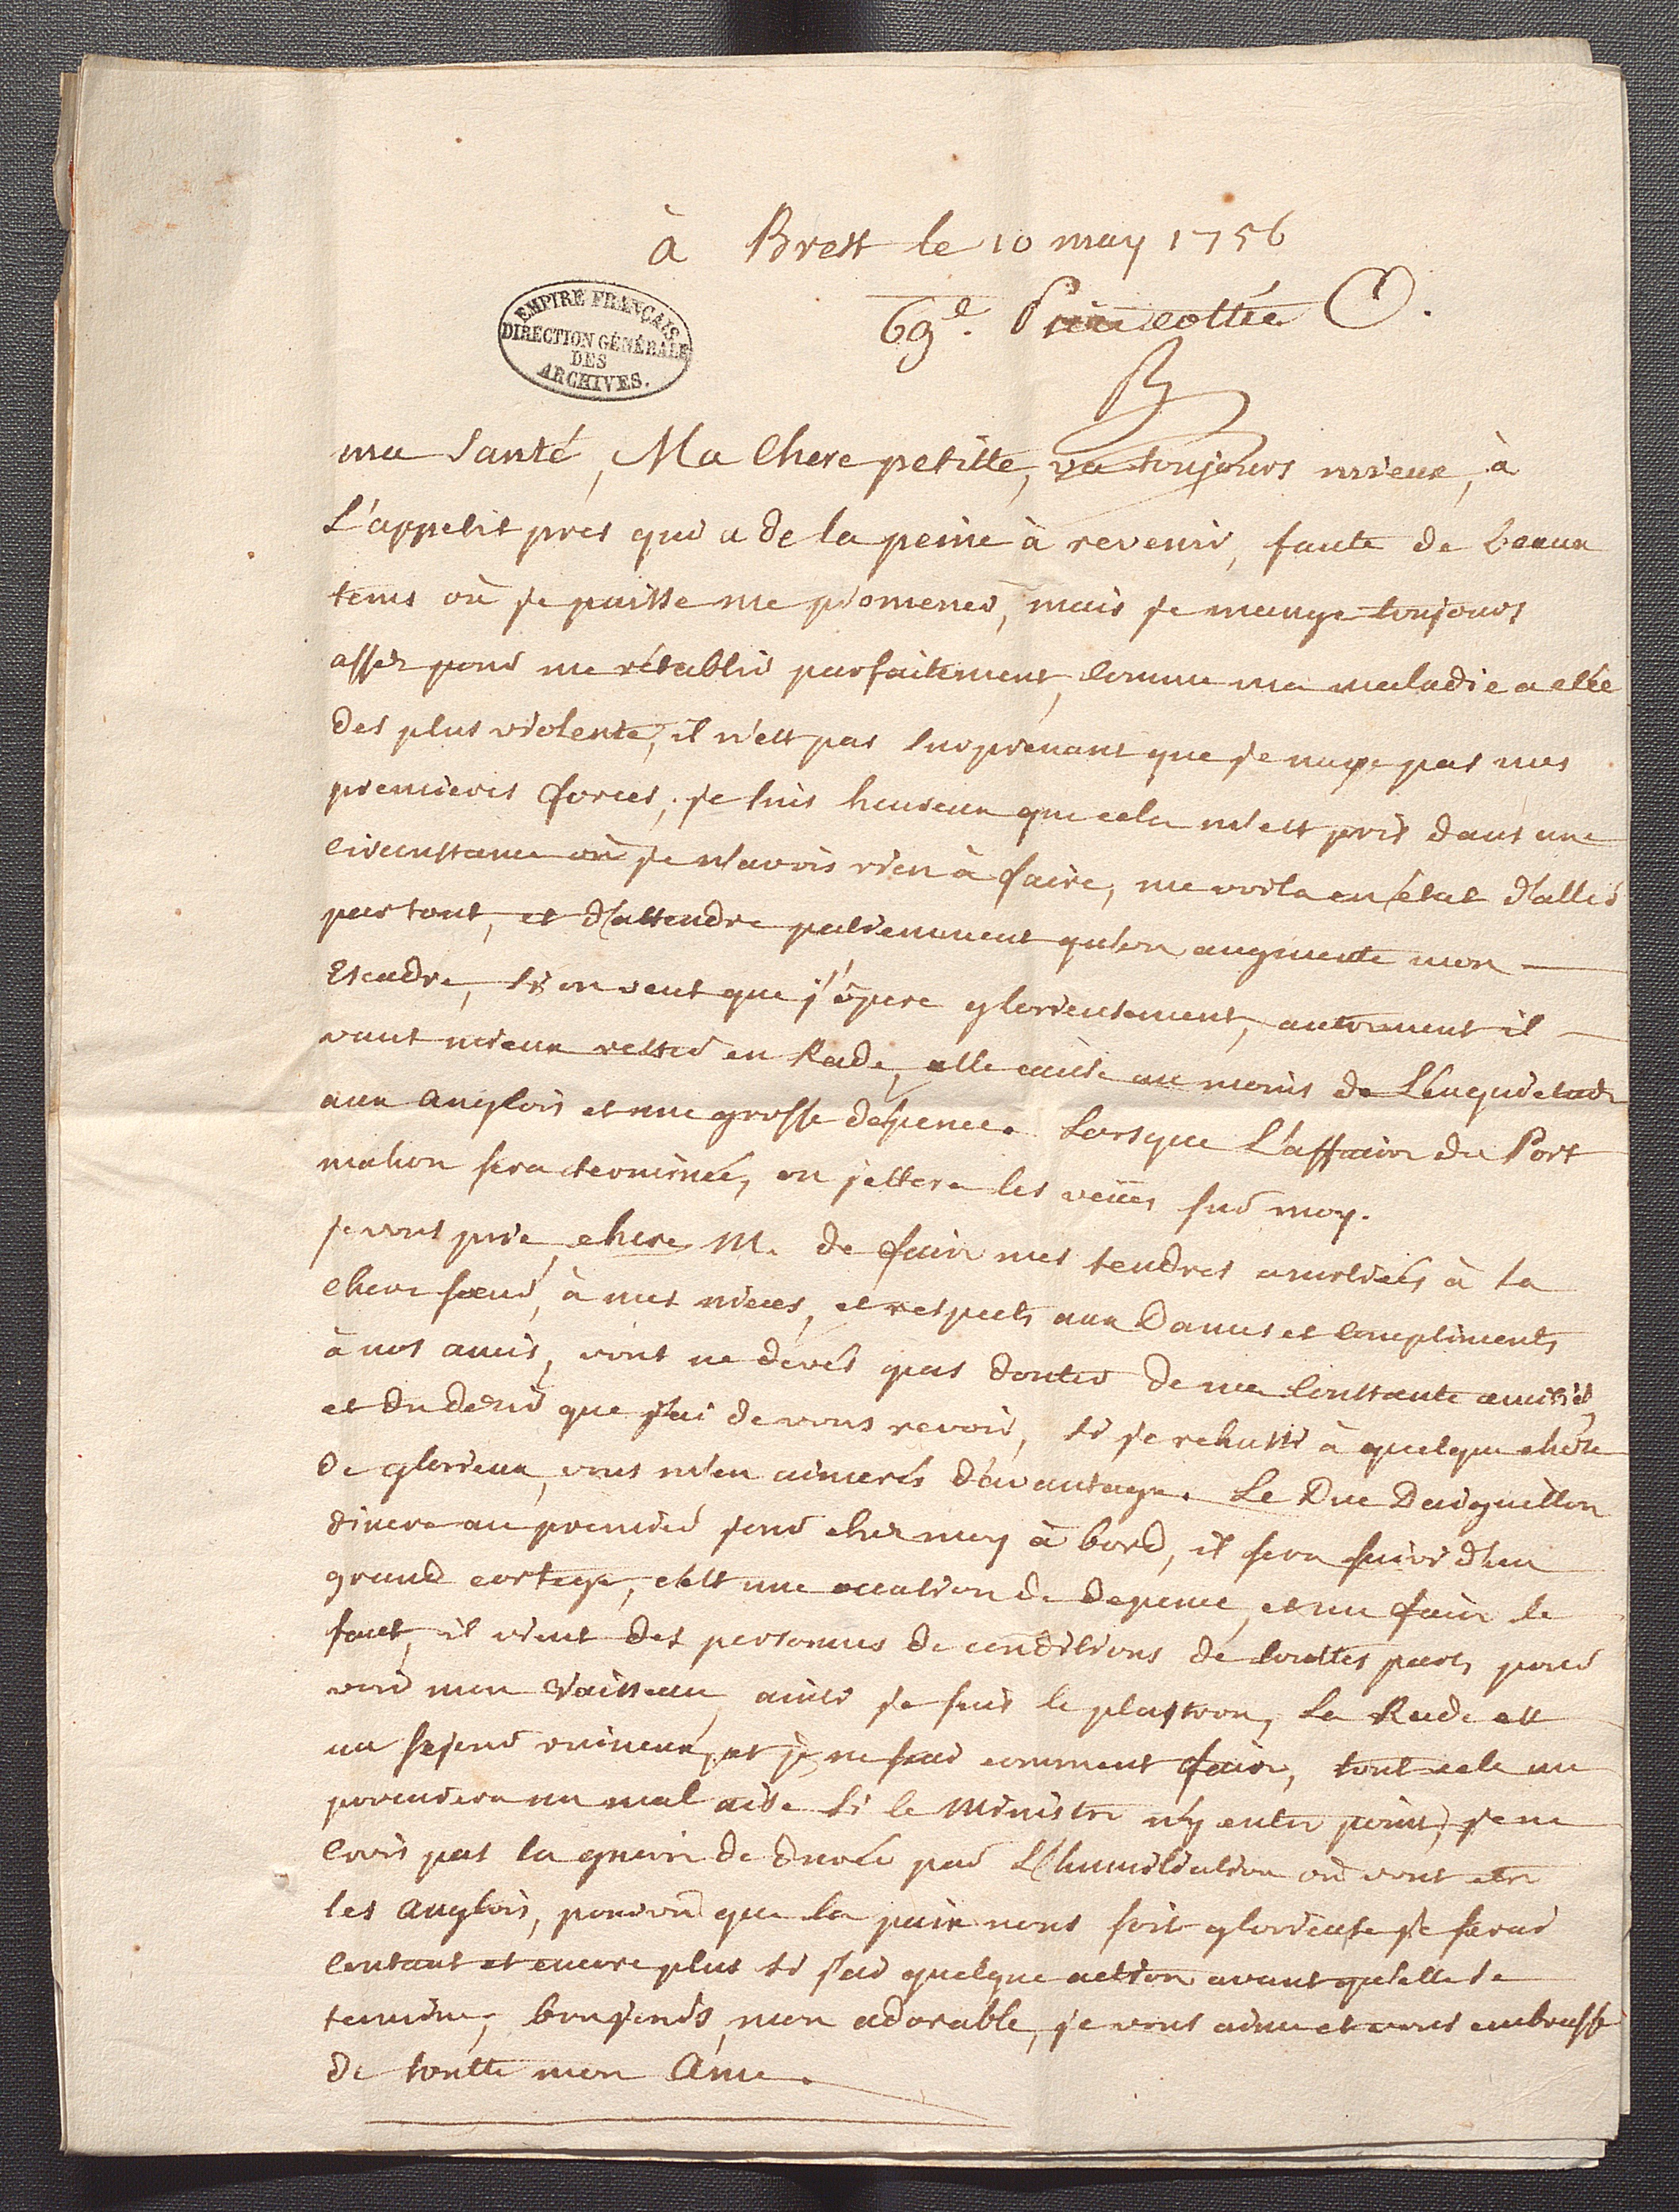 à Brest le 10 may 1756
EMPIRE FRANÇAIS
DIRECTION GÉNÉRALE
DES
ARCHIVES.
69e. Piece cottée C.
ma santé, Ma Chere petitte, va toujours mieux, à
L'appetit pres qui a de la peine à revenir, faute de beaux
tems où je puisse me promener, mais je mange toujours
assez pour me rétablir parfaitement, comme ma maladie a etée
des plus violente, il n'est pas surprenant que je naye pas mes
premieres forces, je suis heureux que cela m'est pris dans une
circonstance où je n'avois rien à faire, me voila en état d'aller
partout, et d'attendre patiemment qu'on augmente mon
Escadre, si on veut que j'ôpere glorieusement, autrement il
vaut mieux rester en Rade, elle cause au moins de L'enquietude
aux anglois et une grosse depence. Lorsque L'affaire du Port
mahon sera terminée, on jettera les veües sur moy.
je vous prie, chere M. de faire mes tendres amitiées à ta
chere soeur, à mes nieces, et respects aux Dames et compliments
à nos amis, vous ne devés pas douter de ma constante amitié,
et du desir que j'ai de vous revoir, si je rehussi à quelque chose
de glorieux, vous m'en aimerés d'avantage. Le Duc Daiguillon
dinera au premier jour chez moy à bord, il sera suivi d'un
grand cortege, c'est une occasion de depence, et me faire le
faut, il vient des personnes de conditions de touttes parts pour
voir mon Vaisseau, ainsi je suis le plastron, La Rade est
un sejour ruineux, et je ne sçai comment faire, tout cela me
mal aise si le Ministre n'y entre point, je ne
crois pas la guerre de durée par L'humiliation où vont etre
les anglois, pourvu que la paix nous soit glorieuse je serai
contant et encore plus si j'ai quelque action avant qu'elle se
termine, bonjours, mon adorable, je vous aime et vous embrasse
de toutte mon Ame.